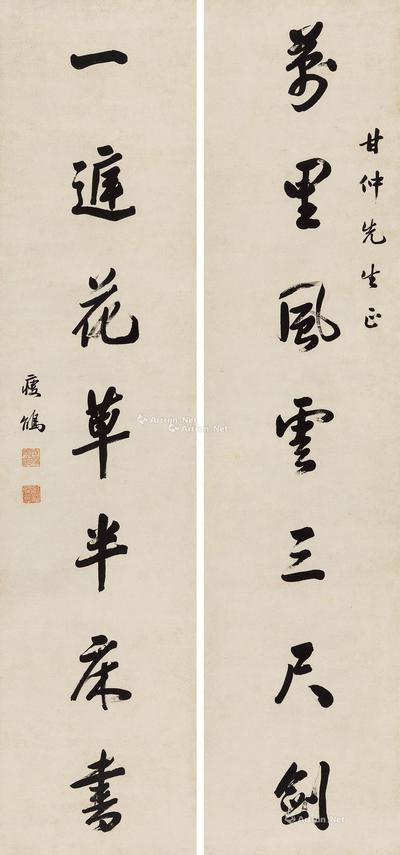 甘仲先生正
萬里風雲三尺劍
一遲花草半床書
瘦鴿
Artron.Net
Artron.Net
Artron.Net